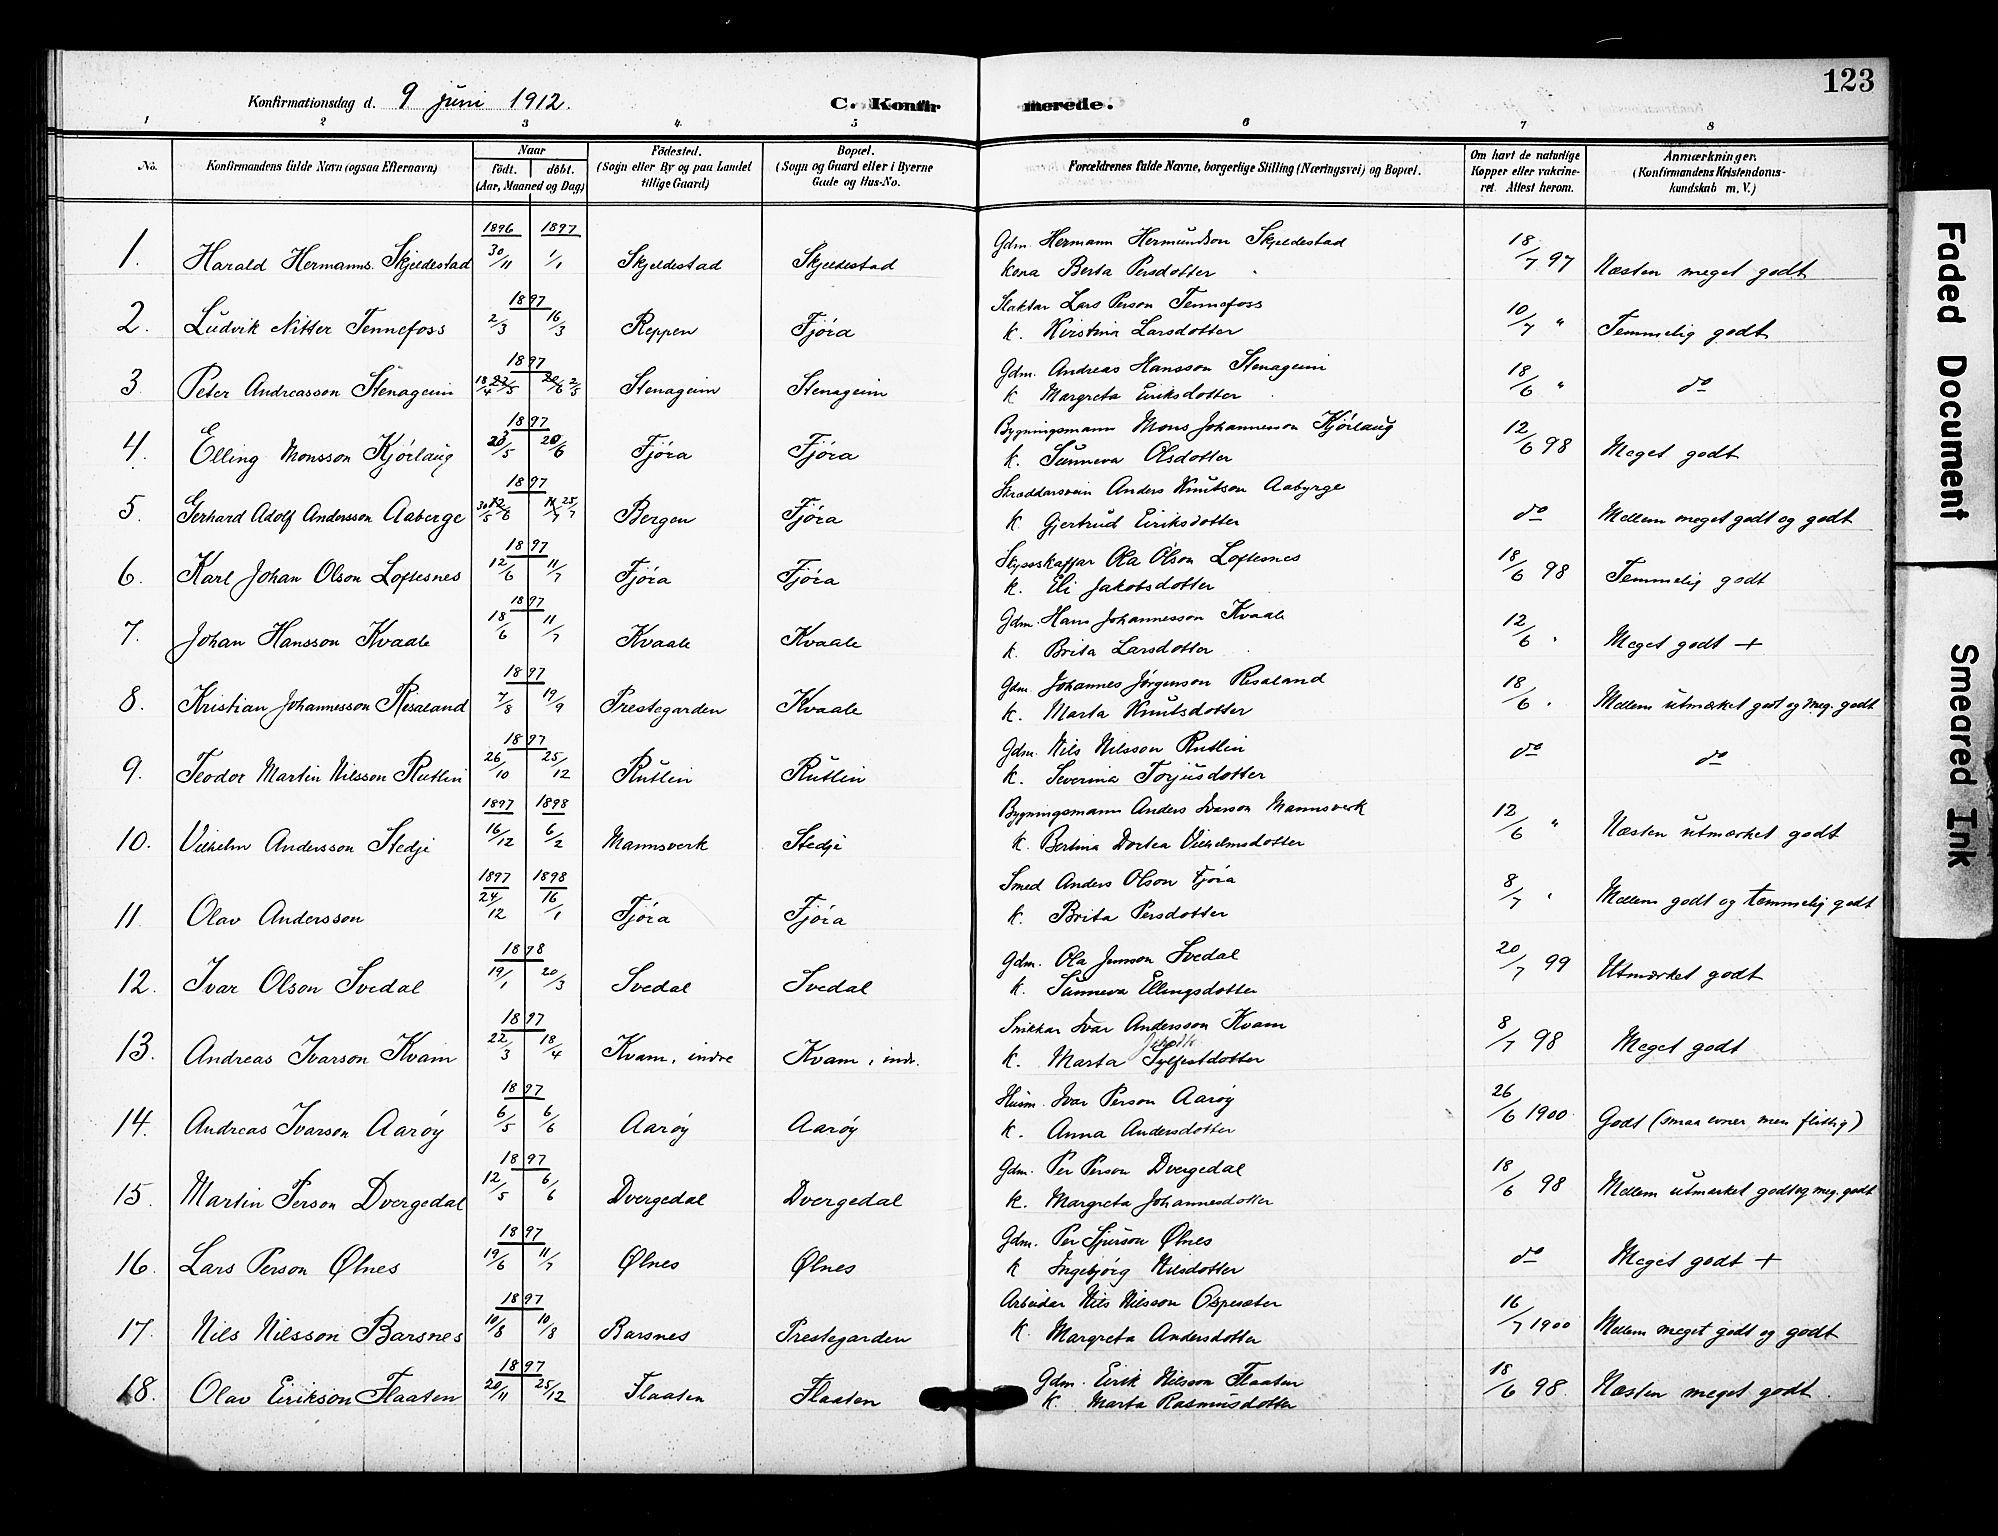 123
Konfirmationsdag d. 9 juni 1912. C. Konfirmerede.
1 2 3 4. 5 6 7 8
No. Konfirmandens fulde Navn (ogsaa Efternavn) Naar født. døbt. (Aar, Maaned og Dag) Fødested. (Sogn eller By og paa Landet tillige Gaard) Bopæl. (Sogn og Gaard eller i Byerne Gade og Hus-No. Forældrenes fulde Navne, borgerlige Stilling (Næringsvei) og Bopæl. Om havt de naturlige Kopper eller vakcineret. Attest herom. Anmærkninger. (Konfirmandens Kristendomskundskab m. V.)
1896 1897 Gdm. Hermann Hermundson Skjeldestad
1. Harald Hermanns. Skjeldestad 30/11 1/1 Skjeldestad Skjeldestad kona Berta Persdotter 18/7 97 Næsten meget godt
1897 Slaktar Lars Person Tennefoss
2. Ludvik Nitter Tennefoss 2/3 16/3 Reppen Fjøra k. Kirstina Larsdotter 10/7 " Temmelig godt
1897 Gdm. Andreas Hansson Stenageim
3. Peter Andreasson Stenageim 18/4 2/5 Stenageim Stenageim k Margreta Eiriksdotter 18/6 " do
1897 Bygningsmann Mons Johannesson Kjørlaug
4. Elling Monsson Kjørlaug 23/5 20/6 Fjøra Fjøra k. Sunneva Olsdotter 12/6 98 Meget godt
1897 Skræddarsvein Anders Knutson Aabyrge
5. Gerhard Adolf Andersson Aaberge 30/5 25/7 Bergen Fjøra k. Gjertrud Eiriksdotter do Mellem meget godt og godt
1897 Skysskaffar Ola Olson Loftesnes
6. Karl Johan Olson Loftesnes 12/6 11/7 Fjøra Fjøra k. Eli Jakobsdotter 18/6 98 Temmelig godt
1897 Gdm. Hans Johannesson Kvaale
7. Johan Hansson Kvaale 18/6 11/7 Kvaale Kvaale k. Brita Larsdotter 12/6 " Meget godt +
1897 Gdm. Johannes Jørgenson Resaland
8. Kristian Johannesson Resaland 7/8 19/9 Prestegarden Kvaale k. Marta Knutsdotter 18/6 " Mellem utmærket godt og meg. godt
1897 Gdm. Nils Nilsson Rutlin
9. Teodor Martin Nilsson Rutlin 26/10 25/12 Rutlin Rutlin k. Severina Torjusdotter do do
1897 1898 Bygningsmann Anders Ivarson Mannsverk
10. Vilhelm Andersson Stedje 16/12 6/2 Mannsverk Stedje k. Bertina Dortea Vilhelmsdotter 12/6 " Næsten utmærket godt
1897 1898 Smed Anders Olson Fjøra
11. Olav Andersson 24/12 16/1 Fjøra Fjøra k. Brita Persdotter 8/7 " Mellem godt og temmelig godt
1898 Gdm. Ola Jensson Svedal
12. Ivar Olson Svedal 19/1 20/3 Svedal Svedal k. Sunneva Ellingsdotter 20/7 99 Utmærket godt
1897 Snikkar Ivar Andersson Kvam
13. Andreas Ivarson Kvam 22/3 18/4 Kvam, indre Kvam, indr. k. Marta Sylfestdotter 8/7 98 Meget godt
1897 Husm. Ivar Person Aarøy
14. Andreas Ivarson Aarøy 6/5 6/6 Aarøy Aarøy k. Anna Andersdotter 26/6 1900 Godt (smaa evner men flittig)
1897 Gdm. Per Person Dvergedal
15. Martin Person Dvergedal 12/5 6/6 Dvergedal Dvergedal k. Margreta Johannesdotter 18/6 98 Mellem utmærket godt og meg. godt
1897 Gdm. Per Sjurson Ølnes
16. Lars Person Ølnes 19/6 11/7 Ølnes Ølnes k Ingebjørg Nilsdotter do Meget godt +
1897 Arbeidar Nils Nilsson Ospesæter
17. Nils Nilsson Barsnes 10/8 10/8 Barsnes Prestegarden k. Margreta Andersdotter 16/7 1900 Mellem meget godt og godt
1897 Gdm. Eirik Nilsson Flaaten
18. Olav Eirikson Flaaten 20/11 25/12 Flaaten Flaaten k Marta Rasmusdotter 18/6 98 Næsten meget godt
Faded Document
Smeared Ink